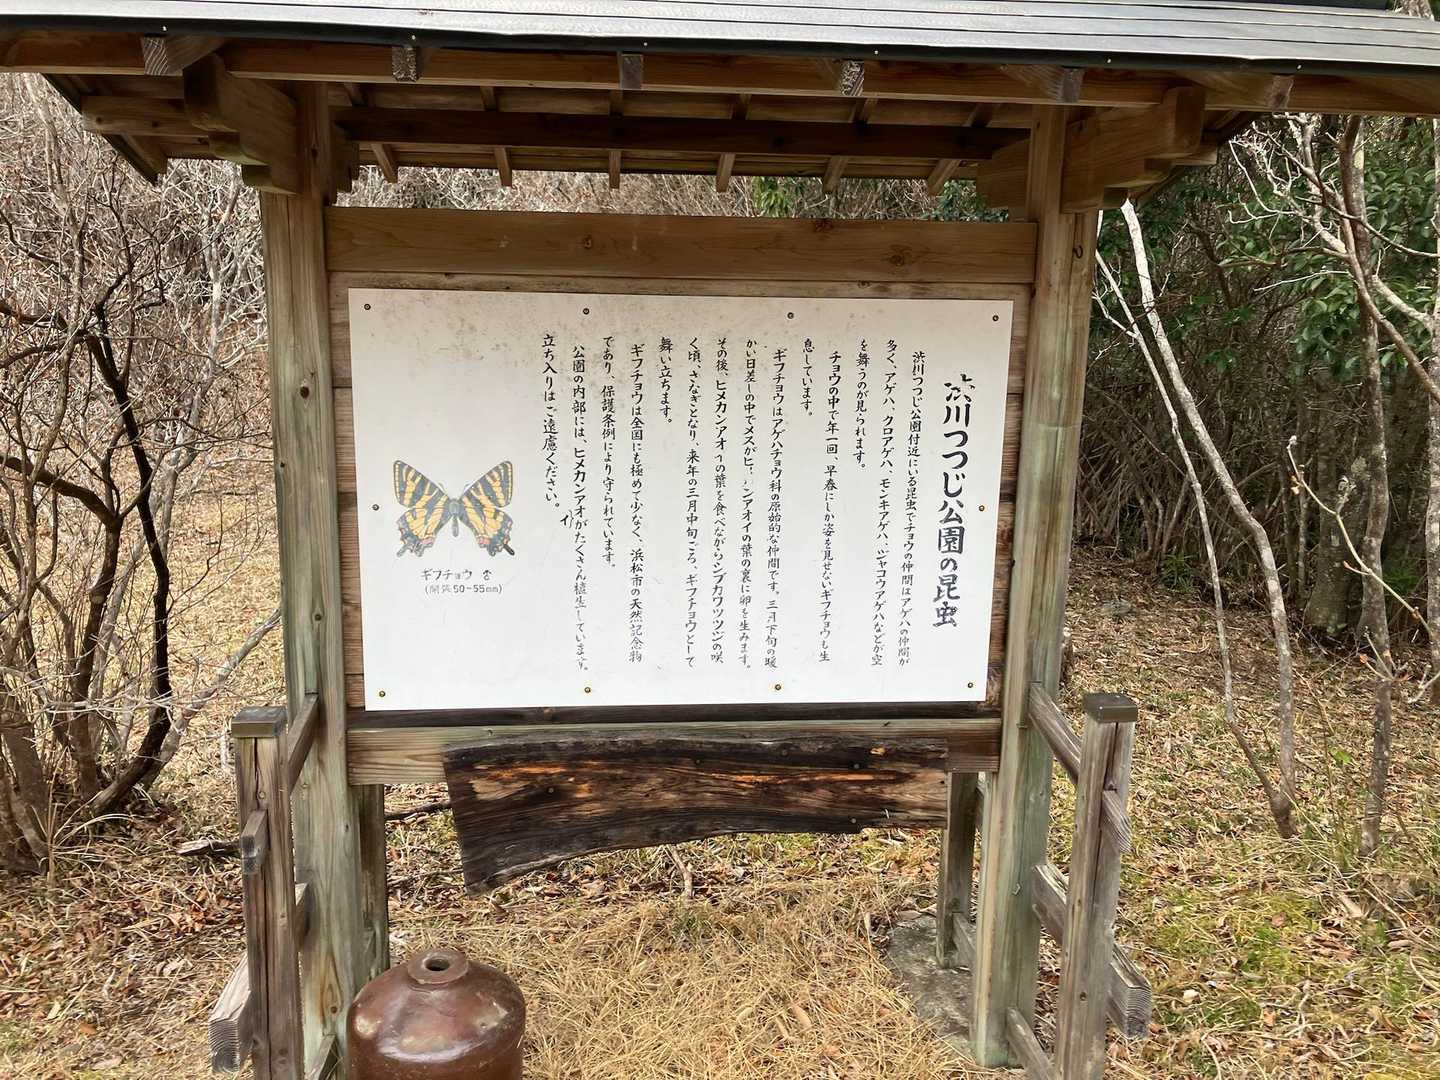 渋川つつじ公園の昆虫
渋川つつじ公園付近にいる昆虫でチョウの仲間はアゲハの仲間が
多く、アゲハ、クロアゲハ、モンキアゲハ、ジャコウアゲハなどが空
を舞うのが見られます。
チョウの中で年一回、早春にしか姿を見せないギフチョウも生
息しています。
ギフチョウはアゲハチョウ科の原始的な仲間です。三月下旬の暖
かい日差しの中でメスがヒ ンアオイの葉の裏に卵を生みます。
その後、ヒメカンアオイの葉を食べながらシブカワツツジの咲
く頃、さなぎとなり、来年の三月中旬ごろ、ギフチョウとして
舞い立ちます。
ギフチョウは全国にも極めて少なく、浜松市の天然記念物
であり、保護条例により守られています。
公園の内部には、ヒメカンアオイがたくさん植生しています。
立ち入りはご遠慮ください。
ギフチョウ ♂
(開張50~55mm)